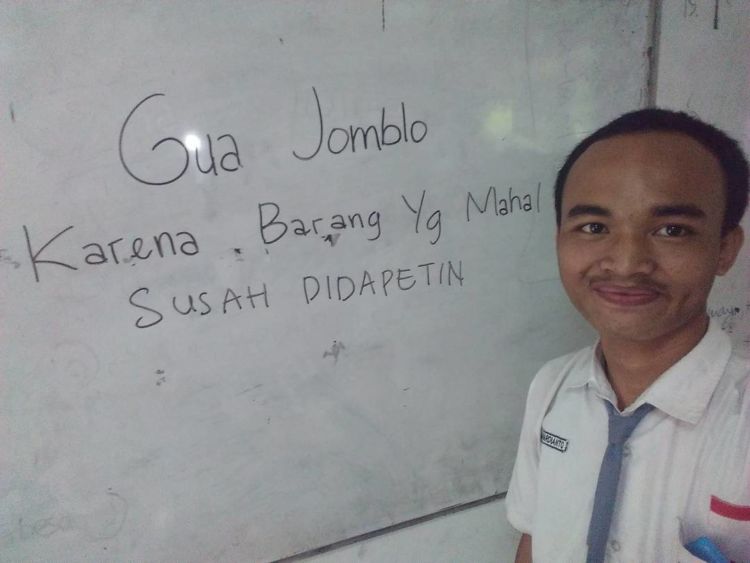 Gua Jomblo
Karena Barang Yg Mahal
SUSAH DIDAPETIN